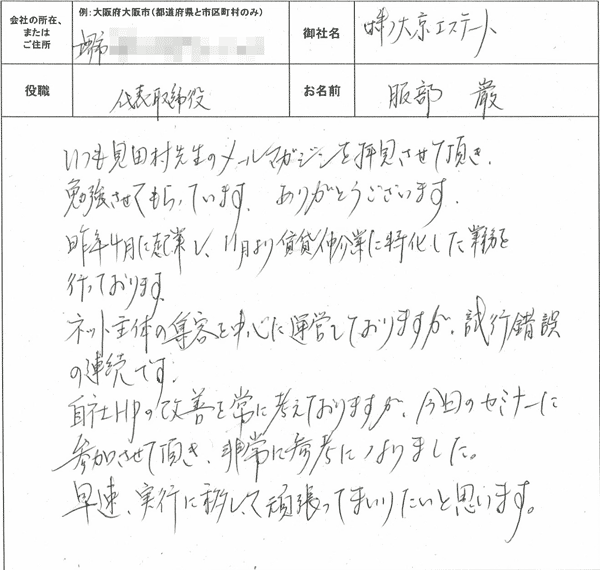 会社の所在、
または
ご住所
例:大阪府大阪市(都道府県と市区町村のみ)
堺市
御社名
㈱大京エステート
役職
代表取締役
お名前
服部 巌
いつも見田村先生のメールマガジンを拝見させて頂き、
勉強させてもらっています。ありがとうございます。
昨年4月に起業し、11月より賃貸仲介業に特化した業務を
行っております。
ネット主体の集客を中心に運営しておりますが、試行錯誤
の連続です。
自社HPの改善を常に考えておりますが、今回のセミナーに
参加させて頂き、非常に参考になりました。
早速、実行に移して頑張ってまいりたいと思います。